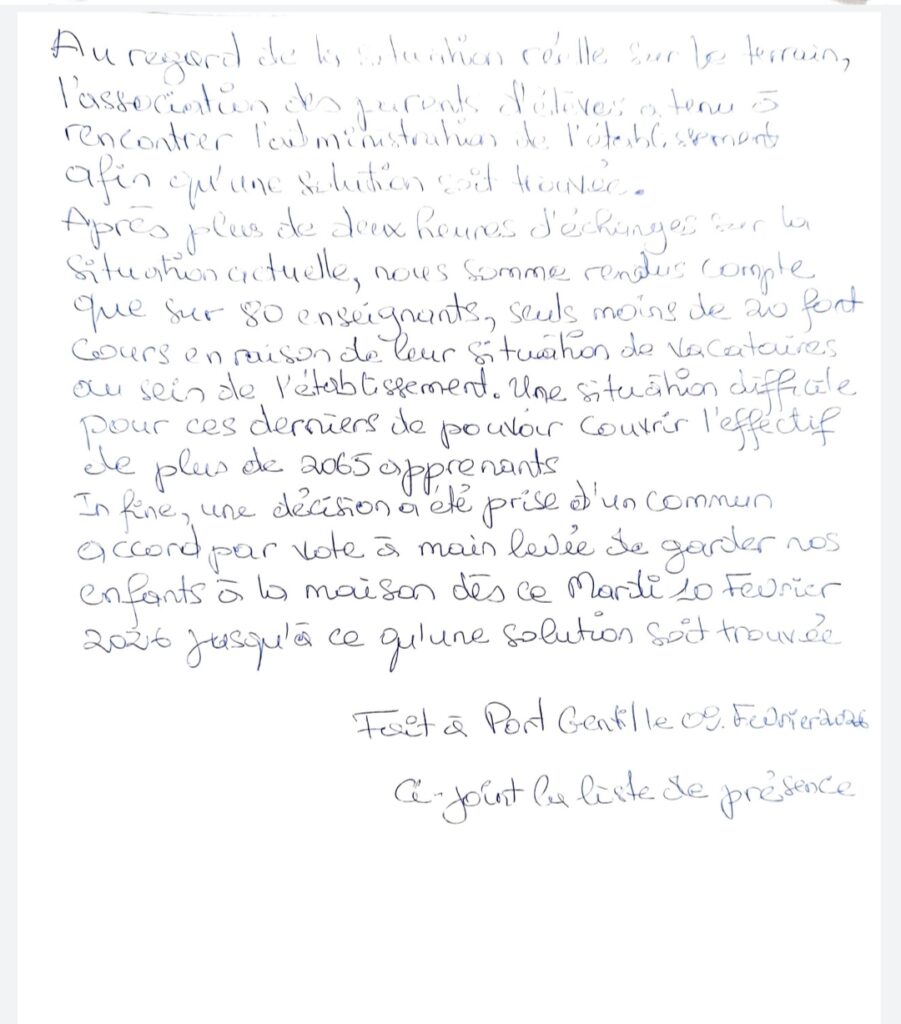 Au regard de la situation réelle sur le terrain,
l'association des parents d'élèves a tenu à
rencontrer l'administration de l'établissement
afin qu'une solution soit trouvée.
Après plus de deux heures d'échanges sur la
situation actuelle, nous somme rendus compte
que sur 80 enseignants, seuls moins de 20 font
cours en raison de leur situation de vacataires
au sein de l'établissement. Une situation difficile
pour ces derniers de pouvoir couvrir l'effectif
de plus de 2065 apprenants
In fine, une décision a été prise d'un commun
accord par vote à main levée de garder nos
enfants à la maison dès ce Mardi 10 Fevrier
2026 jusqu'à ce qu'une solution soit trouvée
Fait à Port Gentille 09. Fevrier 2026
Ci-joint la liste de présence